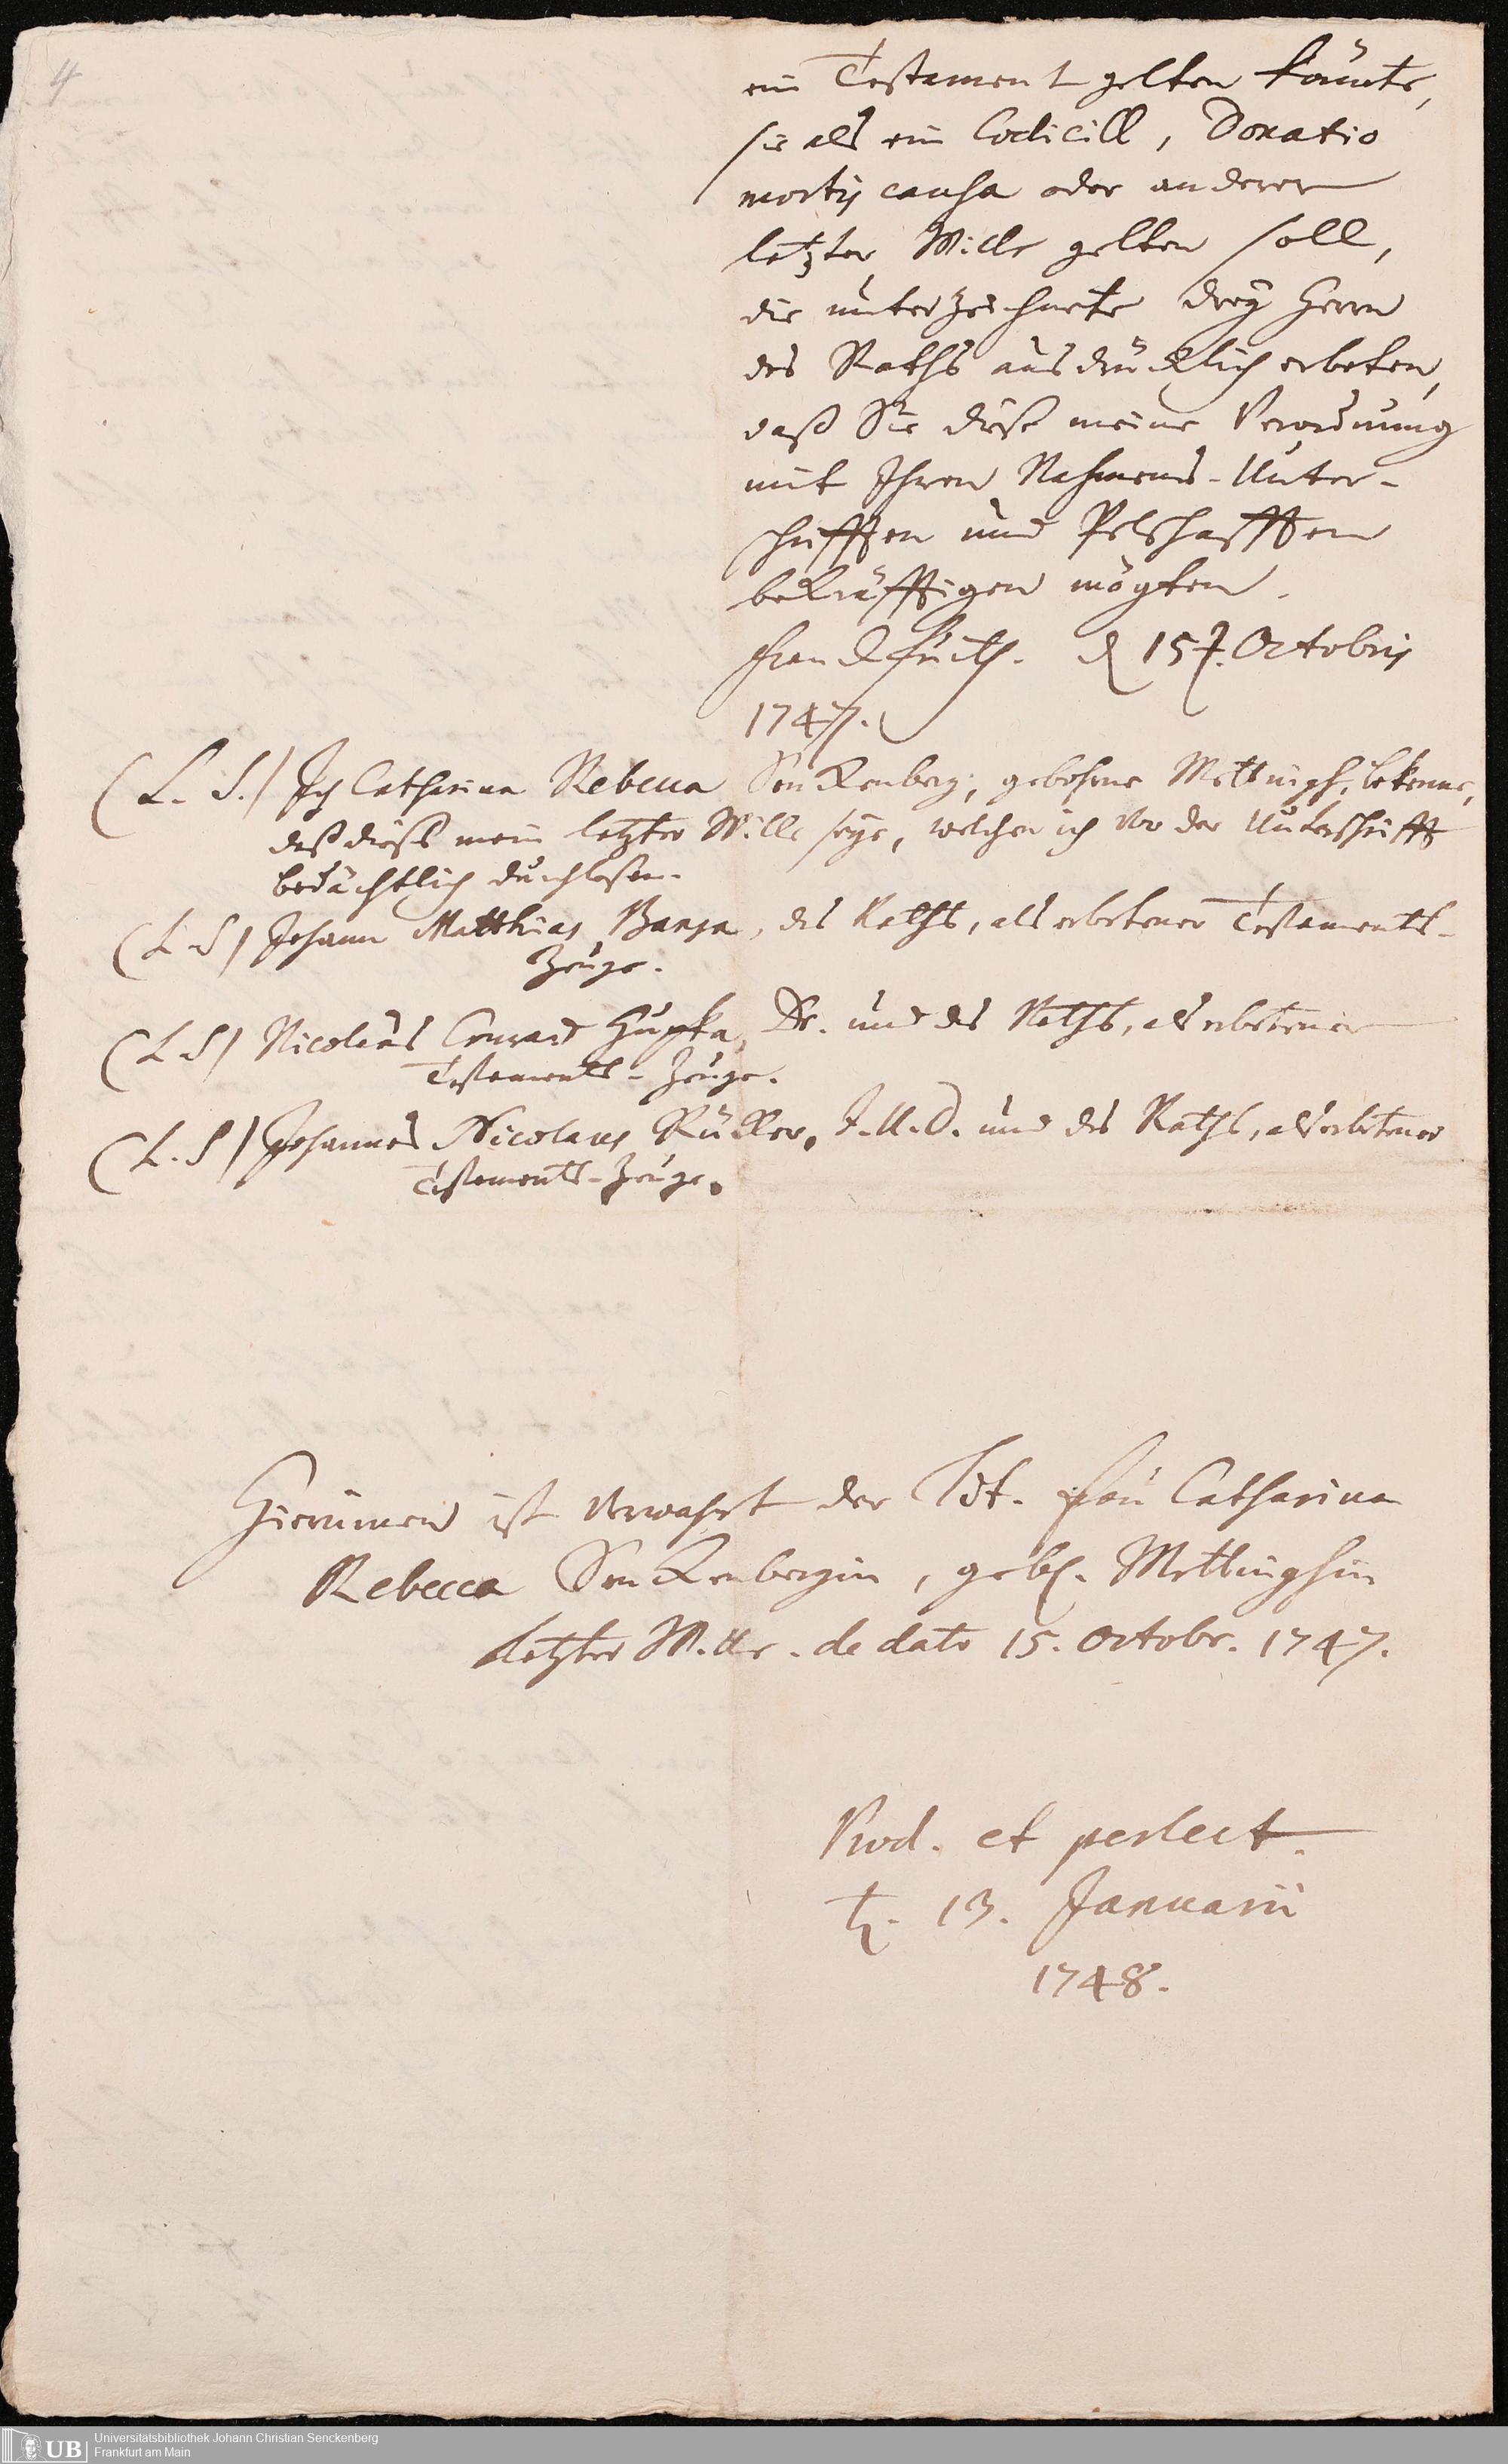 4
ein Testament gelten könnte,
sie als ein Codicill, Donatio
mortis causa oder anderer
letzter Wille gelten soll,
die unterzeichnete drey Herrn
des Raths ausdrücklich erbeten,
daß Sie diese meine Verordnung
mit Ihren Nahmens-Unter-
schrifften und Pettschafften
bekräfftigen mögten.
Franckfurth. d 15t. Octobris
1747.
(L. S.) Ich Catharina Rebecca Senckenberg, gebohrne Mettingh, bekenne,
daß dieses mein letzter Wille seye, welchen ich vor der Unterschrifft
bedächtlich durchlesen.
(L S) Johann Matthias Bansa, des Raths, als erbetener Testaments-
Zeuge.
(L S) Nicolaus Conrad Hupka, Dr. und des Raths, als erbetener
Testaments-Zeuge.
(L. S) Johannes Nicolaus Rücker, J. U. D. und des Raths, als erbetener
Testaments-Zeuge.
Hierinnen ist verwahrt der Tit. Frau Catharina
Rebecca Senckenbergin, geb. Mettinghin
letzter Wille. de dato 15. Octobr. 1747.
Prod. et perlect.
13. Januarii
1748.
UB
Universitätsbibliothek Johann Christian Senckenberg
Frankfurt am Main